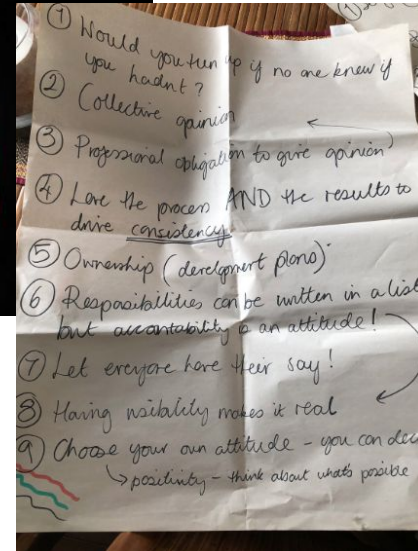 ① Would you turn up if no one knew if
you hadnt?
② Collective opinion
③ Professional obligation to give opinion
④ Love the process AND the results to
drive consistency
⑤ Ownership (development plans)
⑥ Responsibilities can be written in a list
but accountability is an attitude!
⑦ Let everyone have their say!
⑧ Having visibility makes it real
⑨ Choose your own attitude - you can dec
↳ positivity - think about what's possible